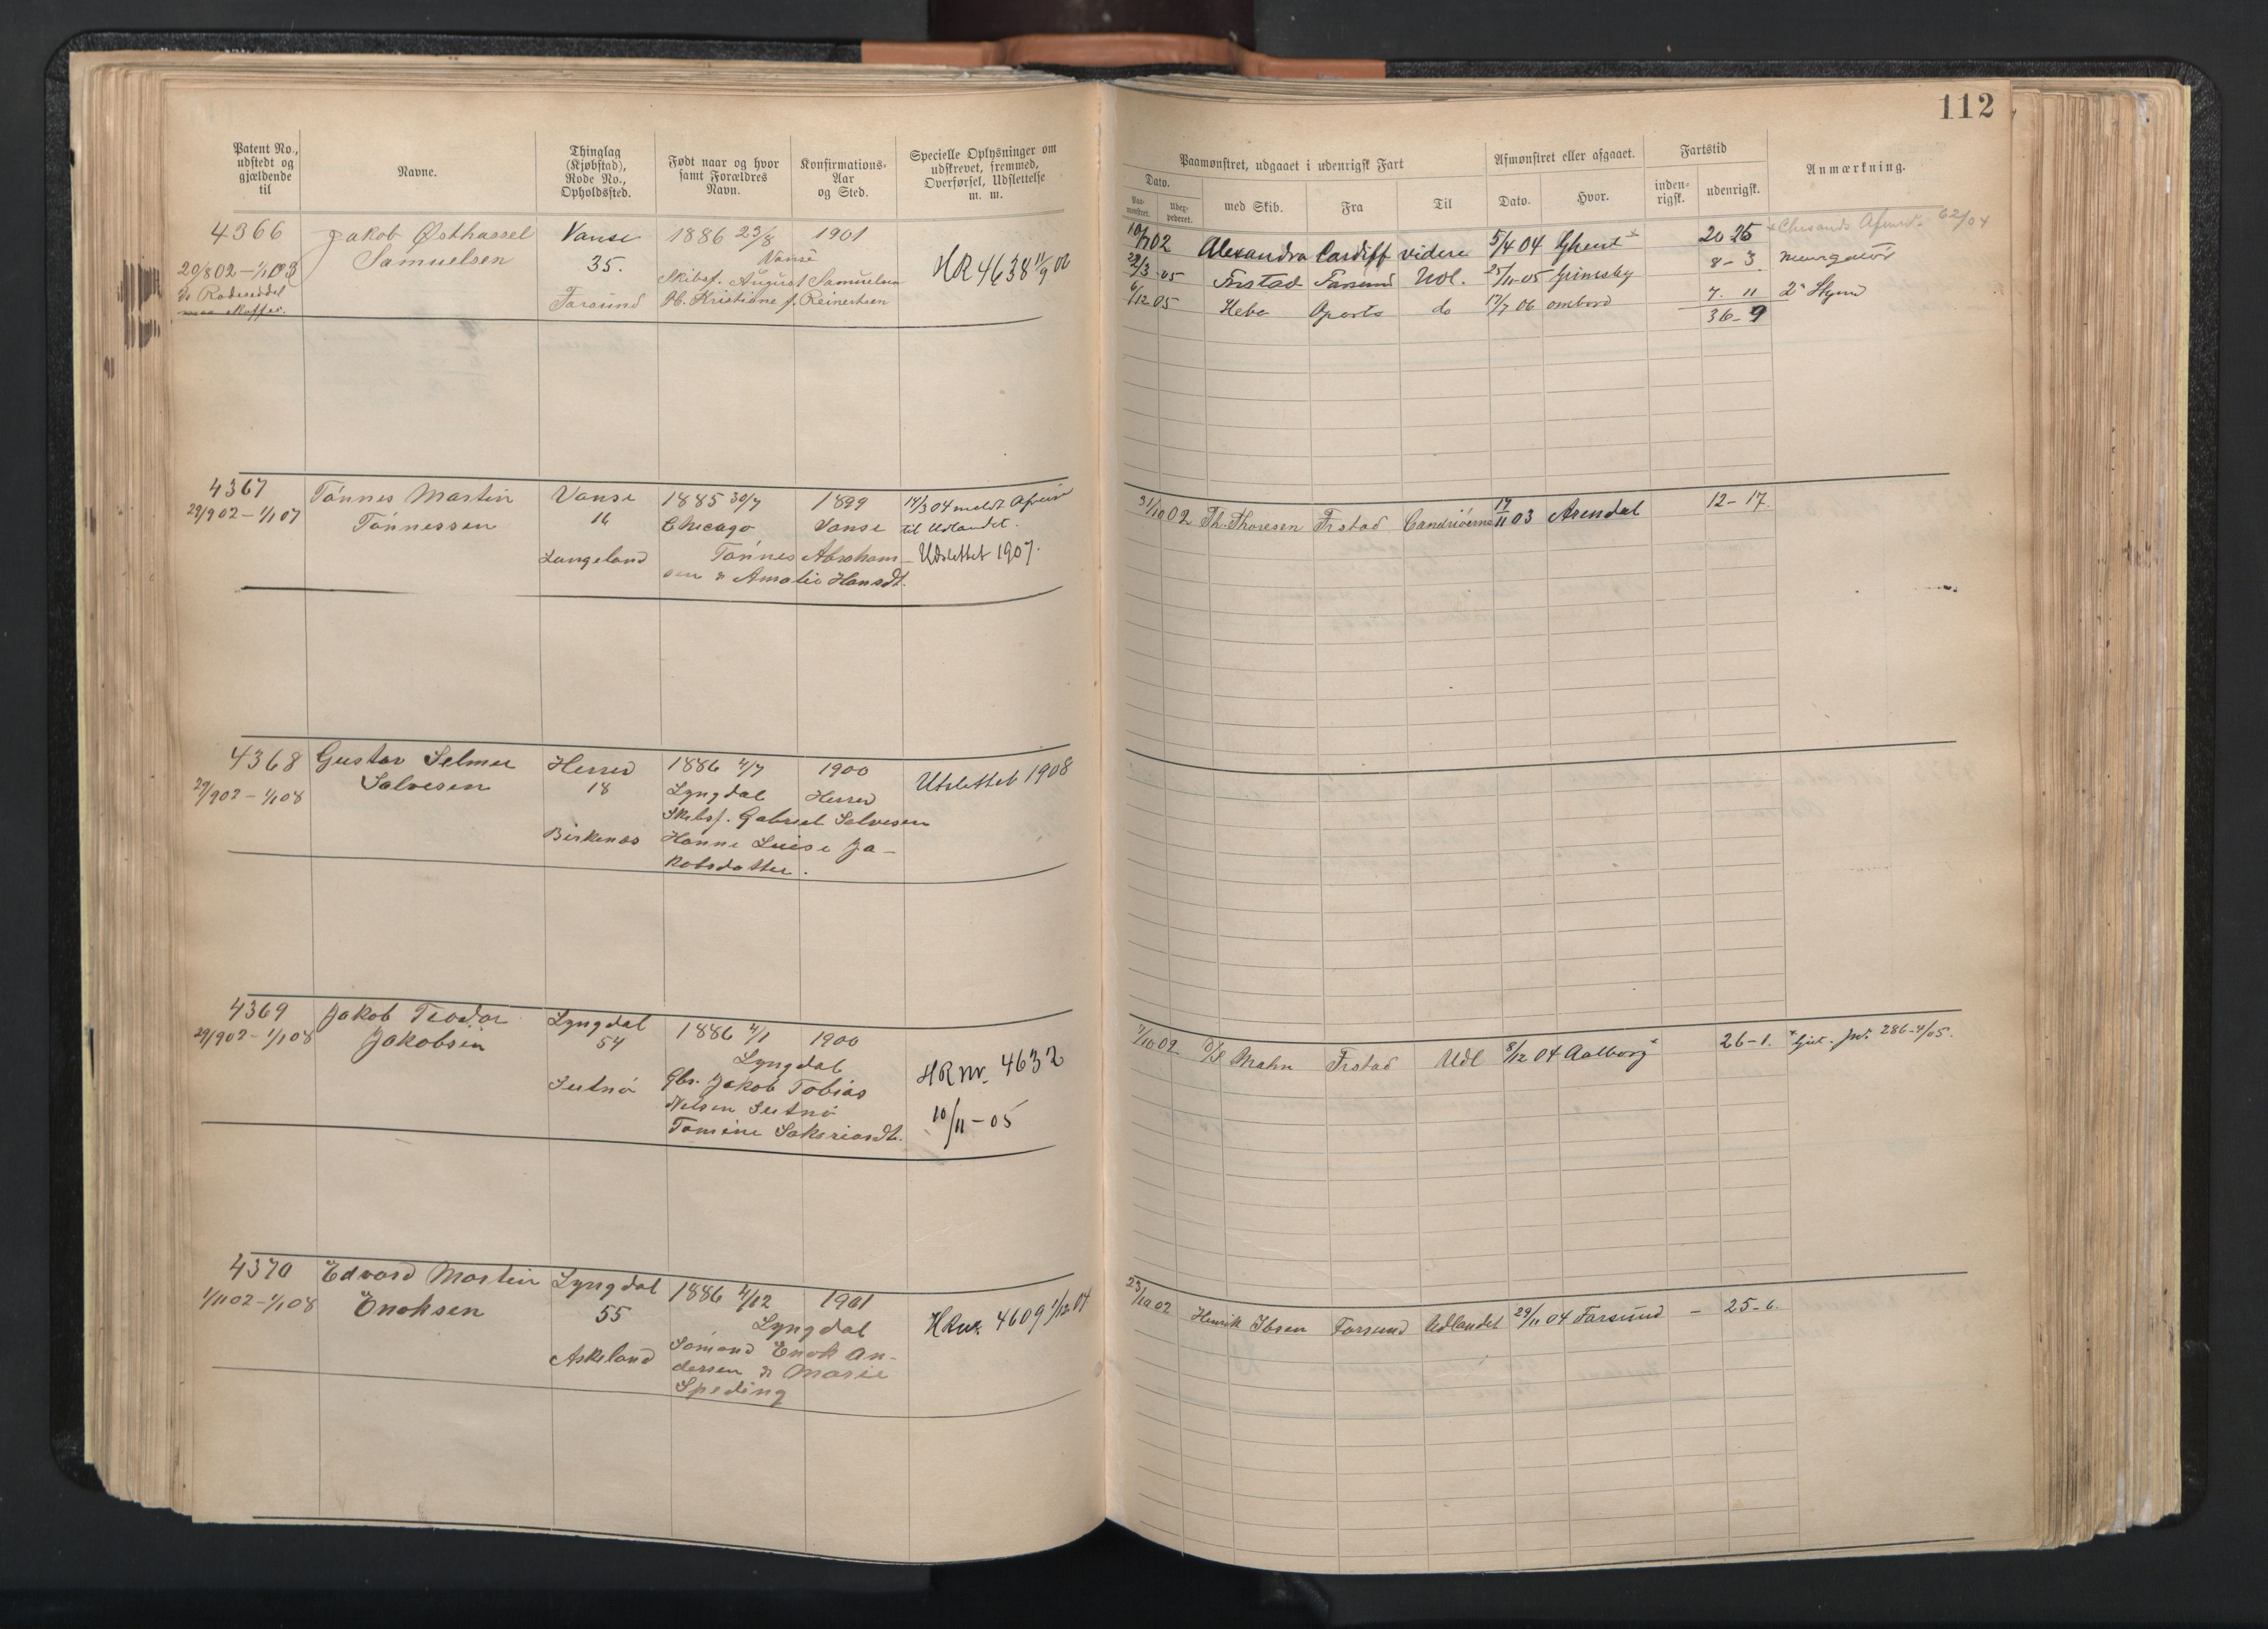 112
Patent No., udstedt og gjældende til
Navne.
Thinglag (Kjøbstad), Rode No., Opholdssted.
Født naar og hvor samt Forældres Navn.
Konfirmations-Aar og Sted.
Specielle Oplysninger om udskrevet, fremmed, Overførsel, Udslettelse m. m.
Paamønstret, udgaaet i udenrigsk Fart
Afmønstret eller afgaaet.
Fartstid
Anmærkning.
Dato.
Paa-mønstret.
Uder-pederet.
med Skib.
Fra
Til
Dato.
Hvor.
inden-rigsk.
udenrigsk.
4366
20/8 02 – 1/1 03
Jakob Østhassel
Samuelsen
Vanse
35.
Farsund
1886 23/8
1901
Vanse
Skibsf. August Samuelsen
Kristiane f. Reinertsen
HR 4638 11/9 06
10/7 02 Alexandra Cardiff videre 5/4 04 Ghent x 20 25
62/04
22/3 05 Frstad Farsund Udl. 25/11-05 Grimsby 8 – 3
6/12 05 Hebe Oporto do 17/7 06 ombord 7. 11 2. Styrm
36 – 9
4367
29/9 02 – 1/1 07
Tønnes Martin
Tønnessen
Vanse
16
Langeland
1885 30/7
Chicago
1899
Vanse
Tønnes Abraham-
sen & Amalie Hansdt.
14/3 04 meldt Afreise
til Udlandet.
Udslettet 1907.
31/10 02 Th. Thoresen Frstad Canariøerne 17/11 03 Arendal 12 – 17.
4368
29/9 02 – 1/1 08
Gustav Selmer
Salvesen
Herred
18
Birkenes
1886 4/7
Lyngdal
1900
Herred
Skibsf. Gabriel Salvesen
Hanne Luise Ja-
kobsdatter.
Utslettet 1908
4369
29/9 02 – 1/1 08
Jakob Teodor
Jakobsen
Lyngdal
54
1886 4/1
1900
Lyngdal
Gbr. Jakob Tobias
Nilsen
Tomine Sakariasdt.
HR nr. 4632
10/11 – 05
7/10 02 D/S Mahn Frstad Udl 8/12 04 Aalborg x 26 – 1.
286-4/05.
4370
1/11 02 – 1/1 08
Edvard Martin
Enoksen
Lyngdal
55
Askeland
1886 4/12
1901
Lyngdal
Sømand Enok An-
dersen & Marie
Speding
HR nr. 4609 1/12 04
23/10 02 Henrik Ibsen Farsund Udlandet 29/11 04 Farsund – 25 – 6.